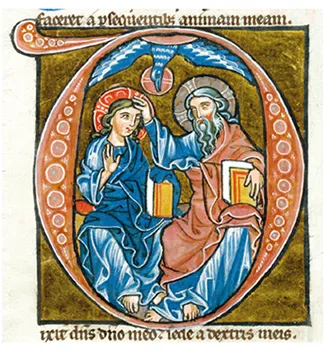 faceret a ꝑsequentibꝫ animam meam.
Dixit dn̄s dn̄o meo: sede a dextris meis.